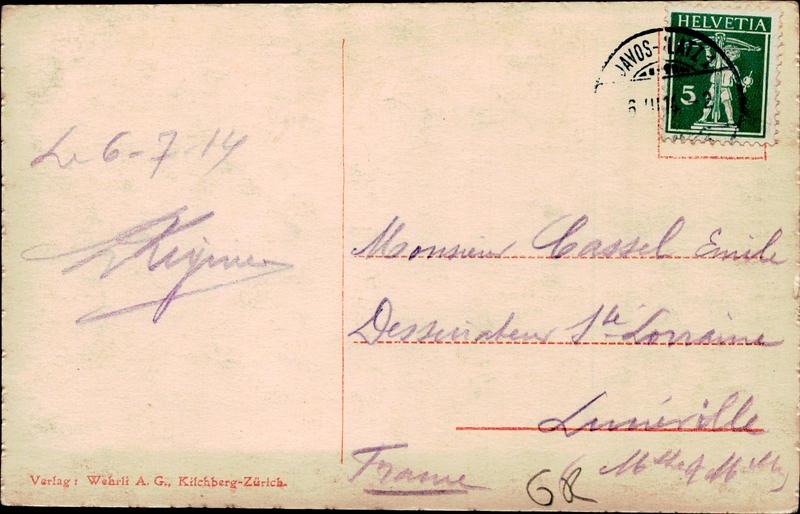 HELVETIA
5
DAVOS-PLATZ
Le 6-7-14
Monsieur Cassel Emile
Dessinateur Sté Lorraine
Lunéville
France
GR
Verlag: Wehrli A. G., Kilchberg-Zürich.